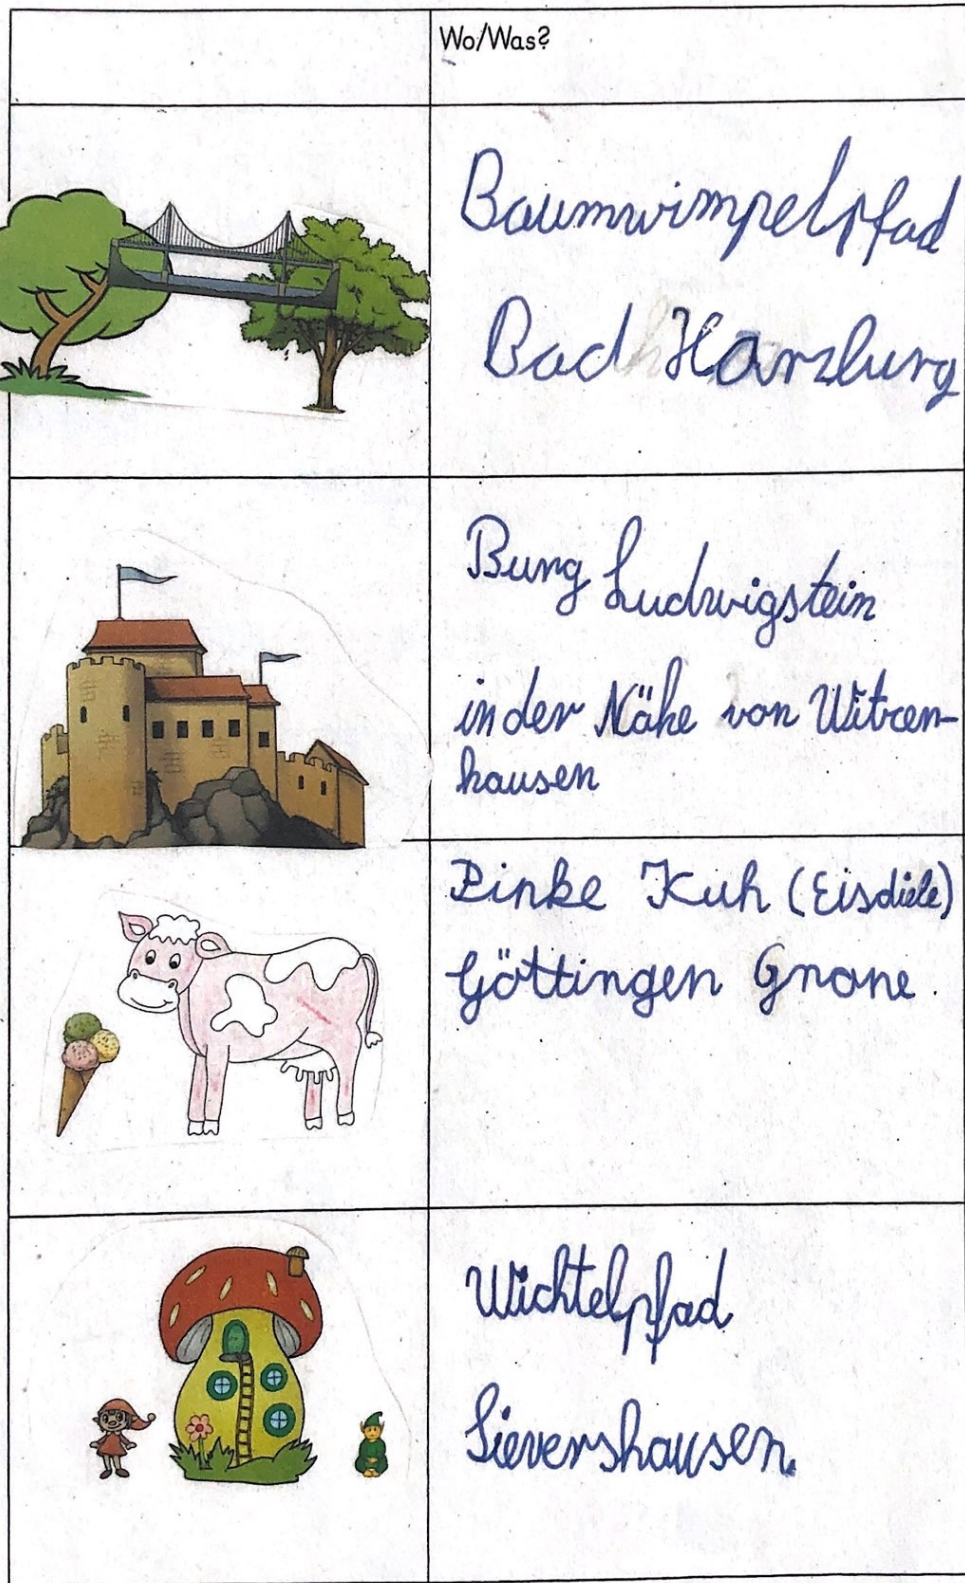 Wo/Was?
Baumwimpelpfad
Bad Harzburg
Burg Ludwigstein
in der Nähe von Witzen-
hausen
Pinke Kuh (Eisdiele)
Göttingen Grone
Wichtelpfad
Sievershausen.